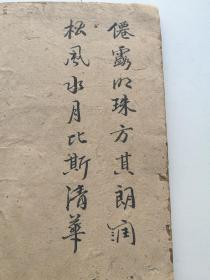 僊露明珠方其朗潤
松風水月比斯清華